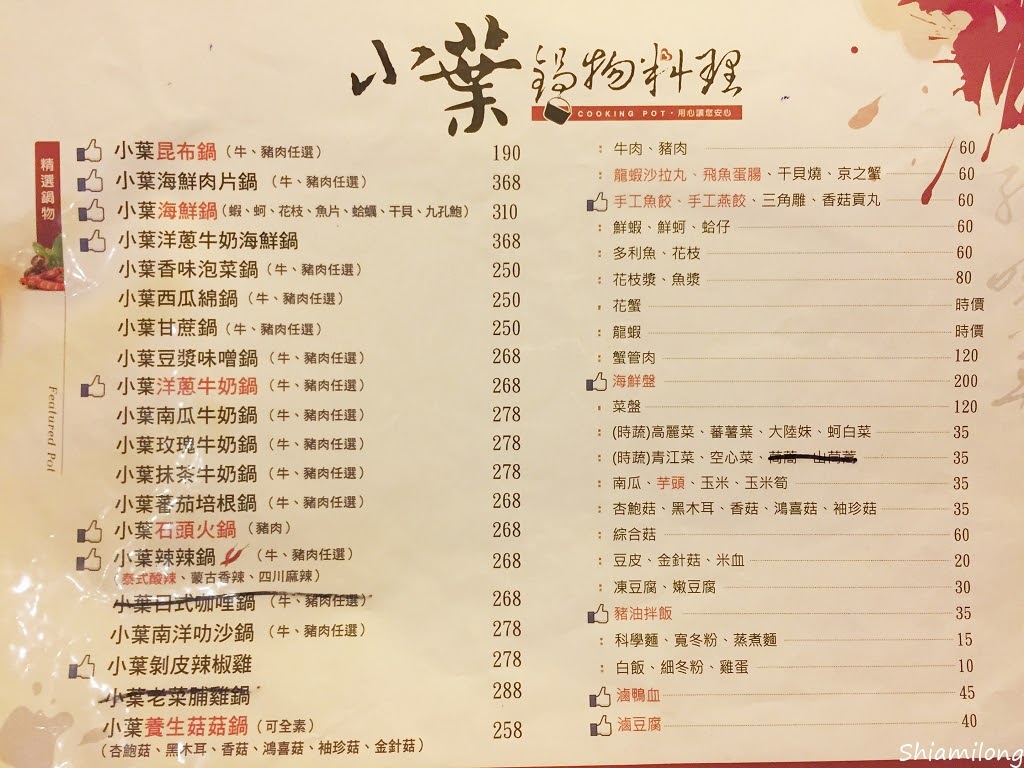 小葉 鍋物料理
COOKING POT・用心讓您安心
精選鍋物
Featured Pot
小葉昆布鍋（牛、豬肉任選） 190
小葉海鮮肉片鍋（牛、豬肉任選） 368
小葉海鮮鍋（蝦、蚵、花枝、魚片、蛤蠣、干貝、九孔鮑） 310
小葉洋蔥牛奶海鮮鍋 368
小葉香味泡菜鍋（牛、豬肉任選） 250
小葉西瓜綿鍋（牛、豬肉任選） 250
小葉甘蔗鍋（牛、豬肉任選） 250
小葉豆漿味噌鍋（牛、豬肉任選） 268
小葉洋蔥牛奶鍋（牛、豬肉任選） 268
小葉南瓜牛奶鍋（牛、豬肉任選） 278
小葉玫瑰牛奶鍋（牛、豬肉任選） 278
小葉抹茶牛奶鍋（牛、豬肉任選） 278
小葉蕃茄培根鍋（牛、豬肉任選） 268
小葉石頭火鍋（豬肉） 268
小葉辣辣鍋（牛、豬肉任選） 268
（泰式酸辣、蒙古香辣、四川麻辣）
小葉日式咖哩鍋（牛、豬肉任選） 268
小葉南洋叻沙鍋（牛、豬肉任選） 278
小葉剝皮辣椒雞 278
小葉老菜脯雞鍋 288
小葉養生菇菇鍋（可全素） 258
（杏鮑菇、黑木耳、香菇、鴻喜菇、袖珍菇、金針菇）
：牛肉、豬肉 60
：龍蝦沙拉丸、飛魚蛋腸、干貝燒、京之蟹 60
手工魚餃、手工燕餃、三角雕、香菇貢丸 60
：鮮蝦、鮮蚵、蛤仔 60
：多利魚、花枝 60
：花枝漿、魚漿 80
：花蟹 時價
：龍蝦 時價
：蟹管肉 120
海鮮盤 200
：菜盤 120
：(時蔬)高麗菜、蕃薯葉、大陸妹、蚵白菜 35
：(時蔬)青江菜、空心菜、茼蒿、山茼蒿 35
：南瓜、芋頭、玉米、玉米筍 35
：杏鮑菇、黑木耳、香菇、鴻喜菇、袖珍菇 35
：綜合菇 60
：豆皮、金針菇、米血 20
：凍豆腐、嫩豆腐 30
豬油拌飯 35
：科學麵、寬冬粉、蒸煮麵 15
：白飯、細冬粉、雞蛋 10
滷鴨血 45
滷豆腐 40
Shiamilong